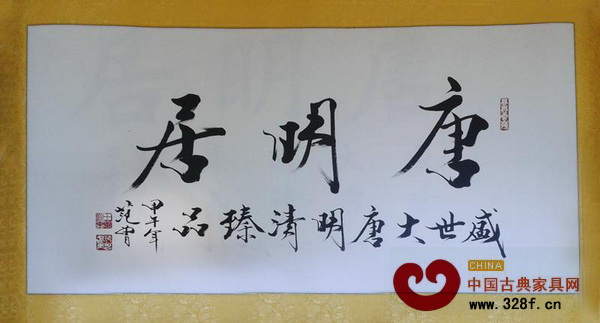 唐明居
盛世大唐明清臻品
甲午年
范
CHINA
中国古典家具网
www.328f.cn